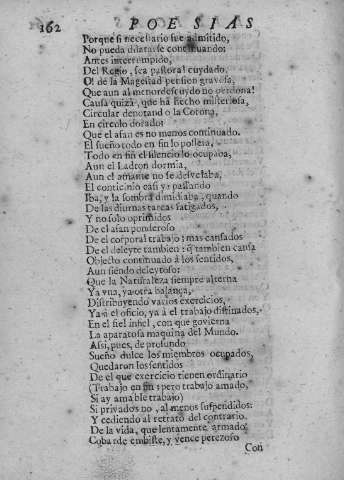 162 POESIAS
Porque si necessario fue admitido,
No pueda dilatarse continuando:
Antes interrompido,
Del Regio, sea pastoral cuydado.
O! de la Magestad pension gravosa,
Que aun al menor descuydo no perdona!
Causa quizà, que ha hecho misteriosa,
Circular denotando la Corona,
En circulo dorado:
Que el afan es no menos continuado.
El sueño todo en fin lo posseia,
Todo en fin el silencio lo ocupava,
Aun el Ladron dormia,
Aun el amante no se desvelava,
El conticinio casi ya passando
Iba, y la sombra dimidiaba, quando
De las diurnas tareas fatigados,
Y no solo oprimidos
De el afan ponderoso
De el corporal trabajo: mas cansados
De el deleyte tambien: q̃ tambien cansa
Objecto continuado à los sentidos,
Aun siendo deleytoso:
Que la Naturaleza siempre alterna
Ya vna, ya otra balança,
Distribuyendo varios exercicios,
Ya à el oficio, ya à el trabajo distinados,
En el fiel infiel, con que govierna
La aparatosa maquina del Mundo.
Assi, pues, de profundo
Sueño dulce los miembros ocupados,
Quedaron los sentidos
De el que exercicio tienen ordinario
(Trabajo en fin: pero trabajo amado,
Si ay amable trabajo)
Si privados no, al menos suspendidos:
Y cediendo al retrato del contrario
De la vida, que lentamente armado
Cobarde embiste, y vence perezoso
Con